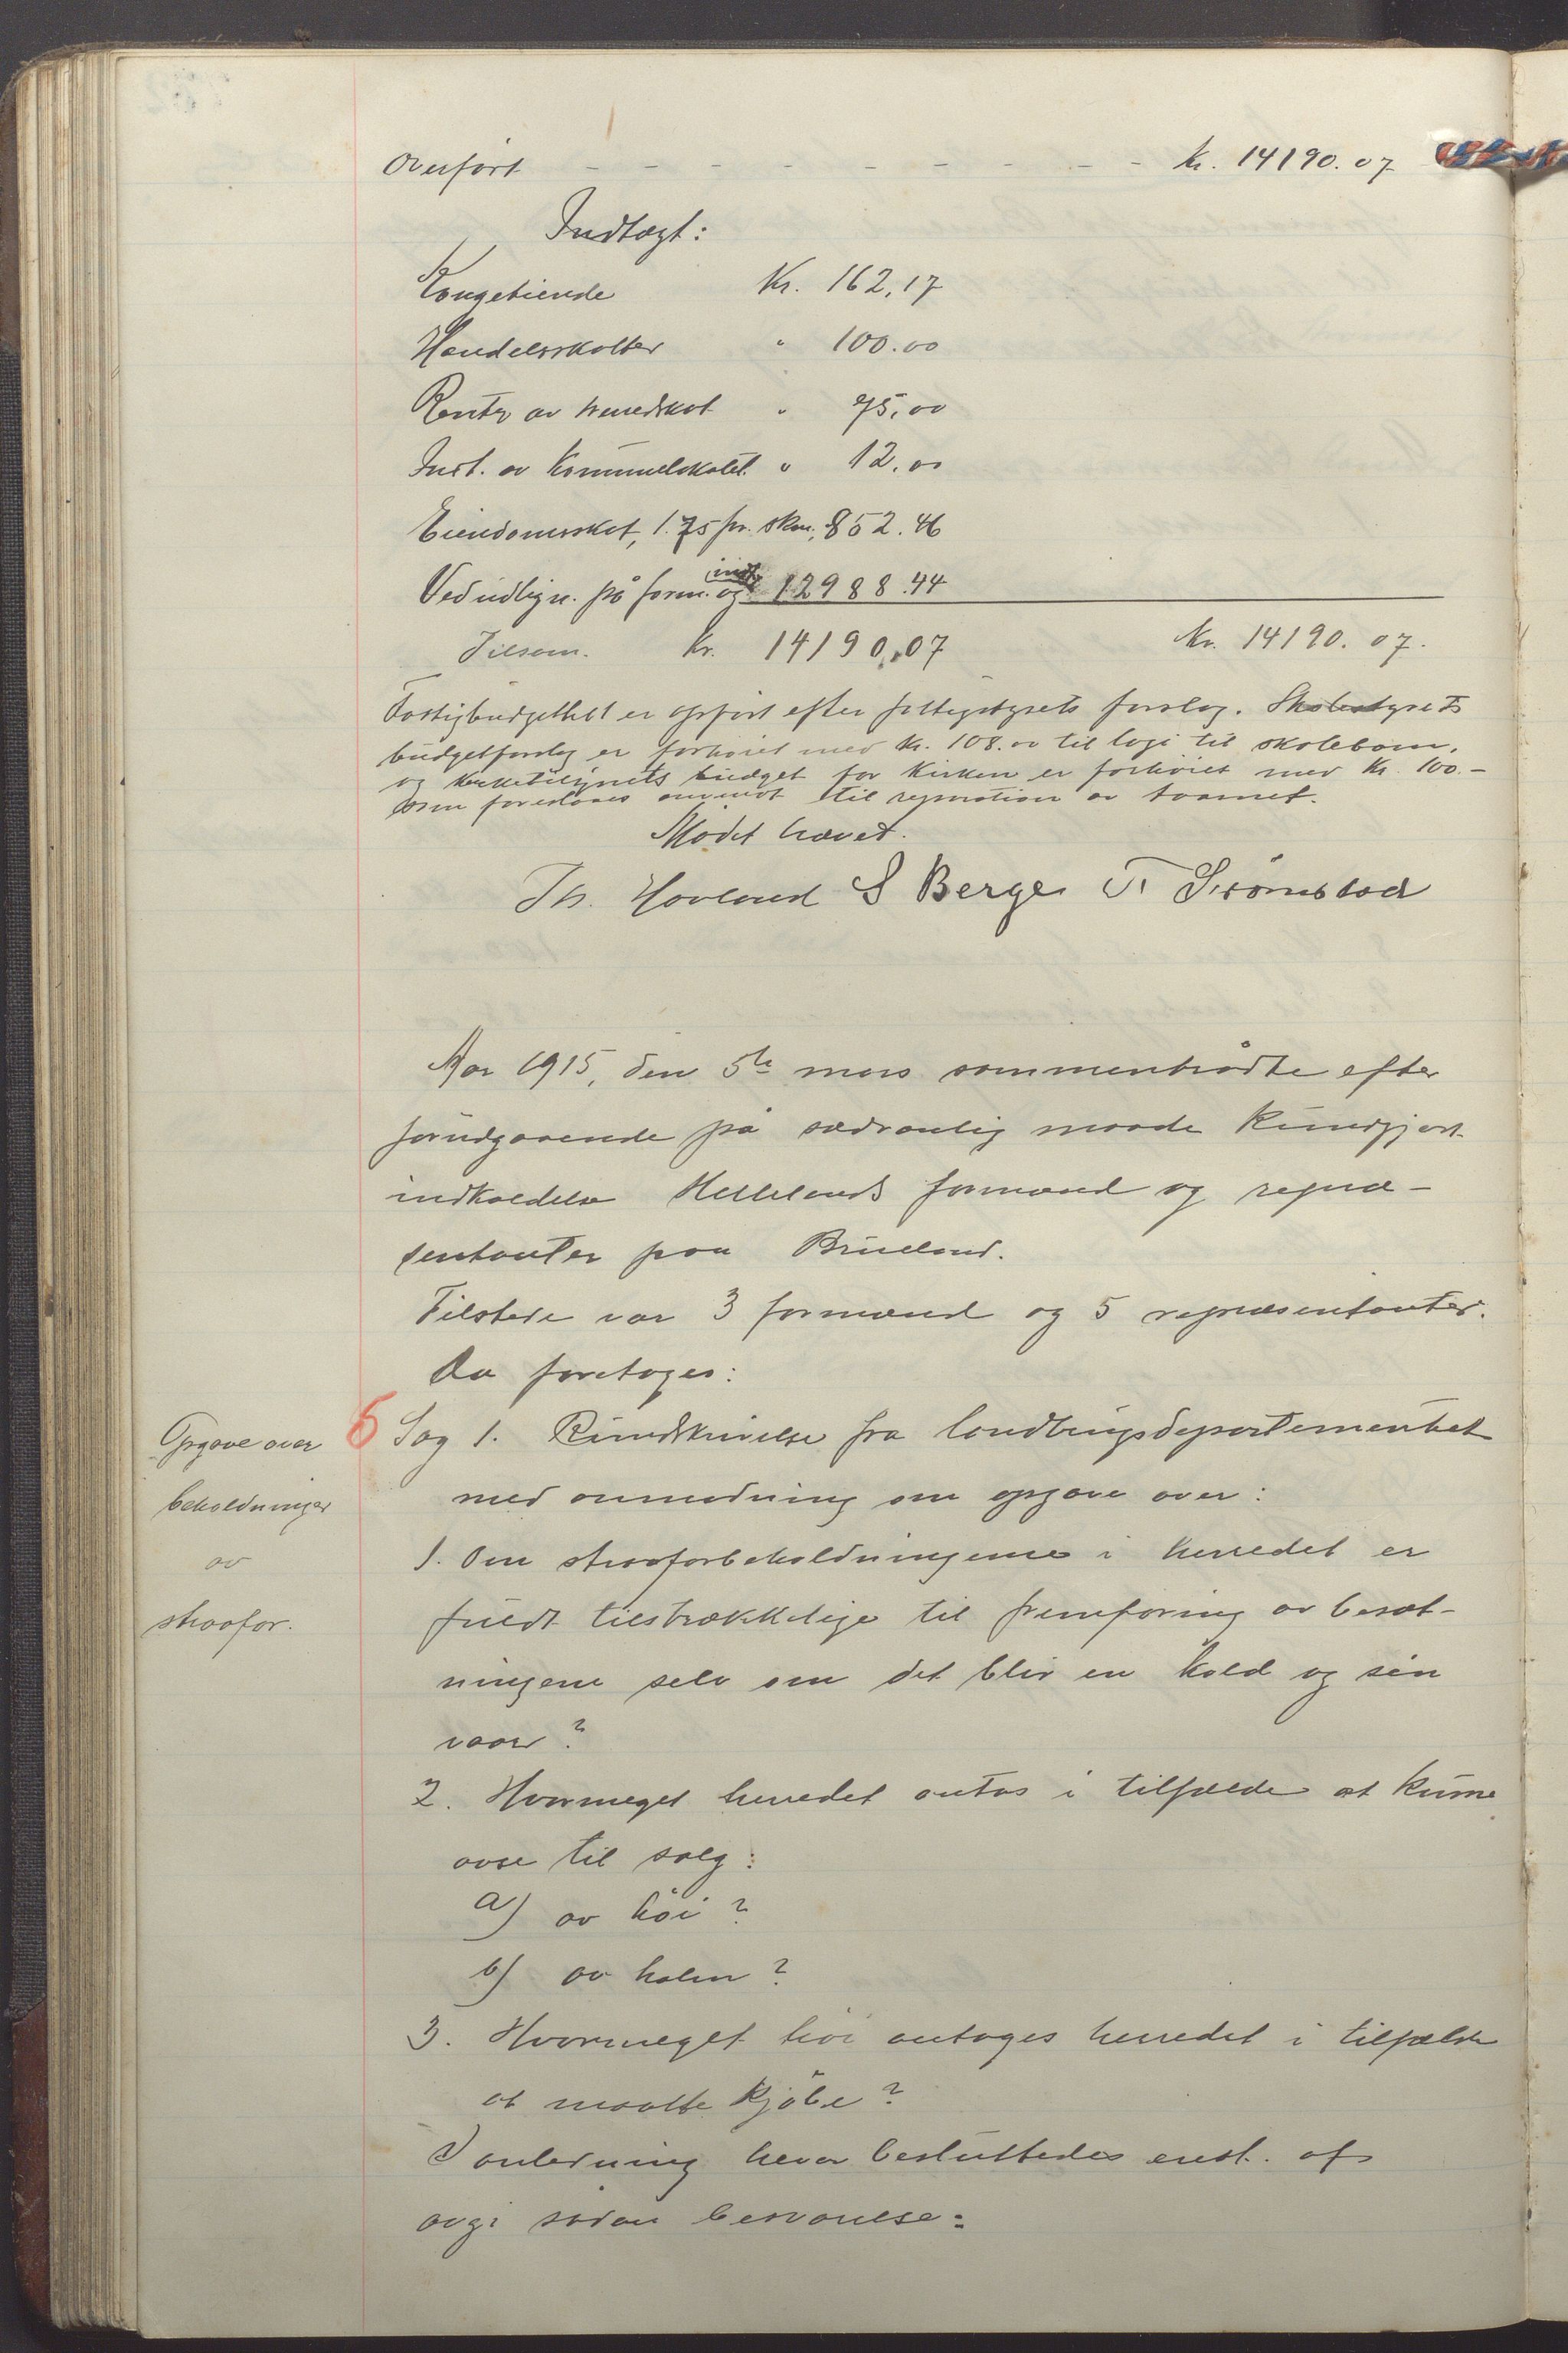 Overført - - - - - - - - - Kr. 14190.07
Indtægt:
Kongetiende Kr. 162,17
Handelsskatter " 100.00
Renter av herredskat " 75,00
Ind. av kommuelokalet. " 12.00
Eiendomsskat, 1.75 pr. skm., 852.46
Ved udlign. på form. og indt. 12988.44
Tilsam. Kr. 14190,07 Kr. 14190.07.
Fattigbudgettet er opført efter fattigstyrets forslag. Skolestyrets
budgetforslag er forhøiet med kr. 108.00 til logi til skolebørn,
og kirketilsynets budget for kirken er forhøiet med Kr. 100.-
som foreslaaes anvendt til repration av taarnet.
Mødet hævet.
Th. Hovland S Berge T Strømstad
Aar 1915, den 5te mars sammentrådte efter
forudgaaende på sædvanlig maade kundgjort
indkaldelse Hellelands formænd og repræ-
sentanter paa Brueland.
Tilstede var 3 formænd og 5 repræsentanter.
Da foretages:
Opgave over
beholdninger
av
straafor.
6 Sag 1. Rundskrivelse fra landbrugsdepartementet
med anmodning om opgave over:
1. Om straaforbeholdningerne i herredet er
fuldt tilstrækkelige til fremforing av besæt-
ningene selv om det blir en kold og sén
vaar?
2. Hvormeget herredet antas i tilfælde at kunne
avse til salg:
a) av høi?
b) av halm?
3. Hvormeget høi antages herredet i tilfælde
at maatte kjøbe?
I anledning herav besluttedes enst. at
avgi sådan besvarelse: